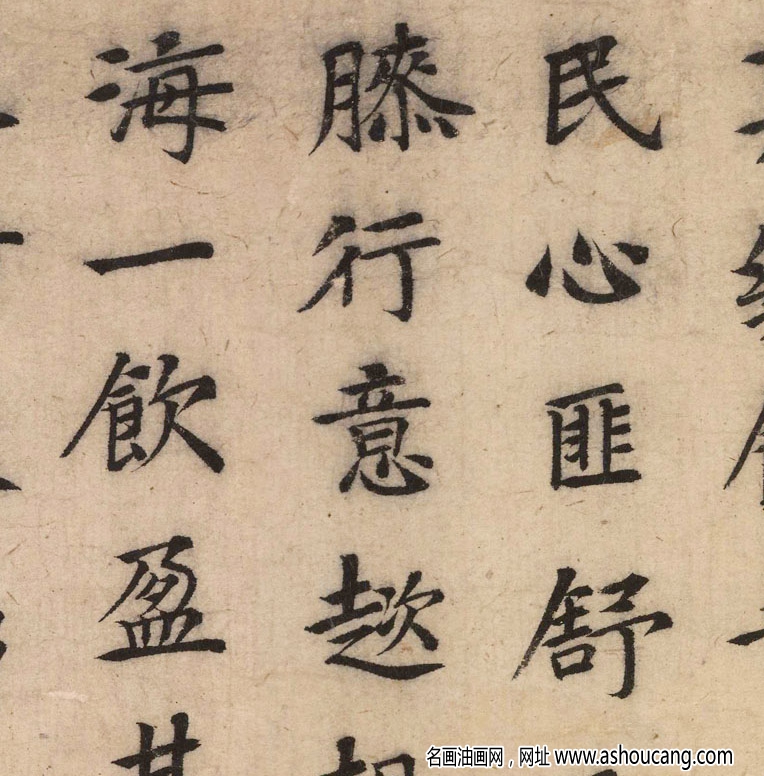 民心匪舒
膝行意趑
海一飲盈其
名画油画网，网址 www.ashoucang.com